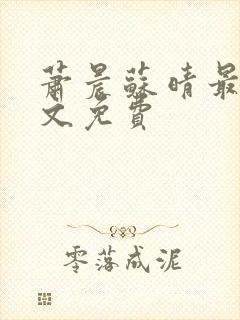 萧晨苏晴最
文免费
零落成泥